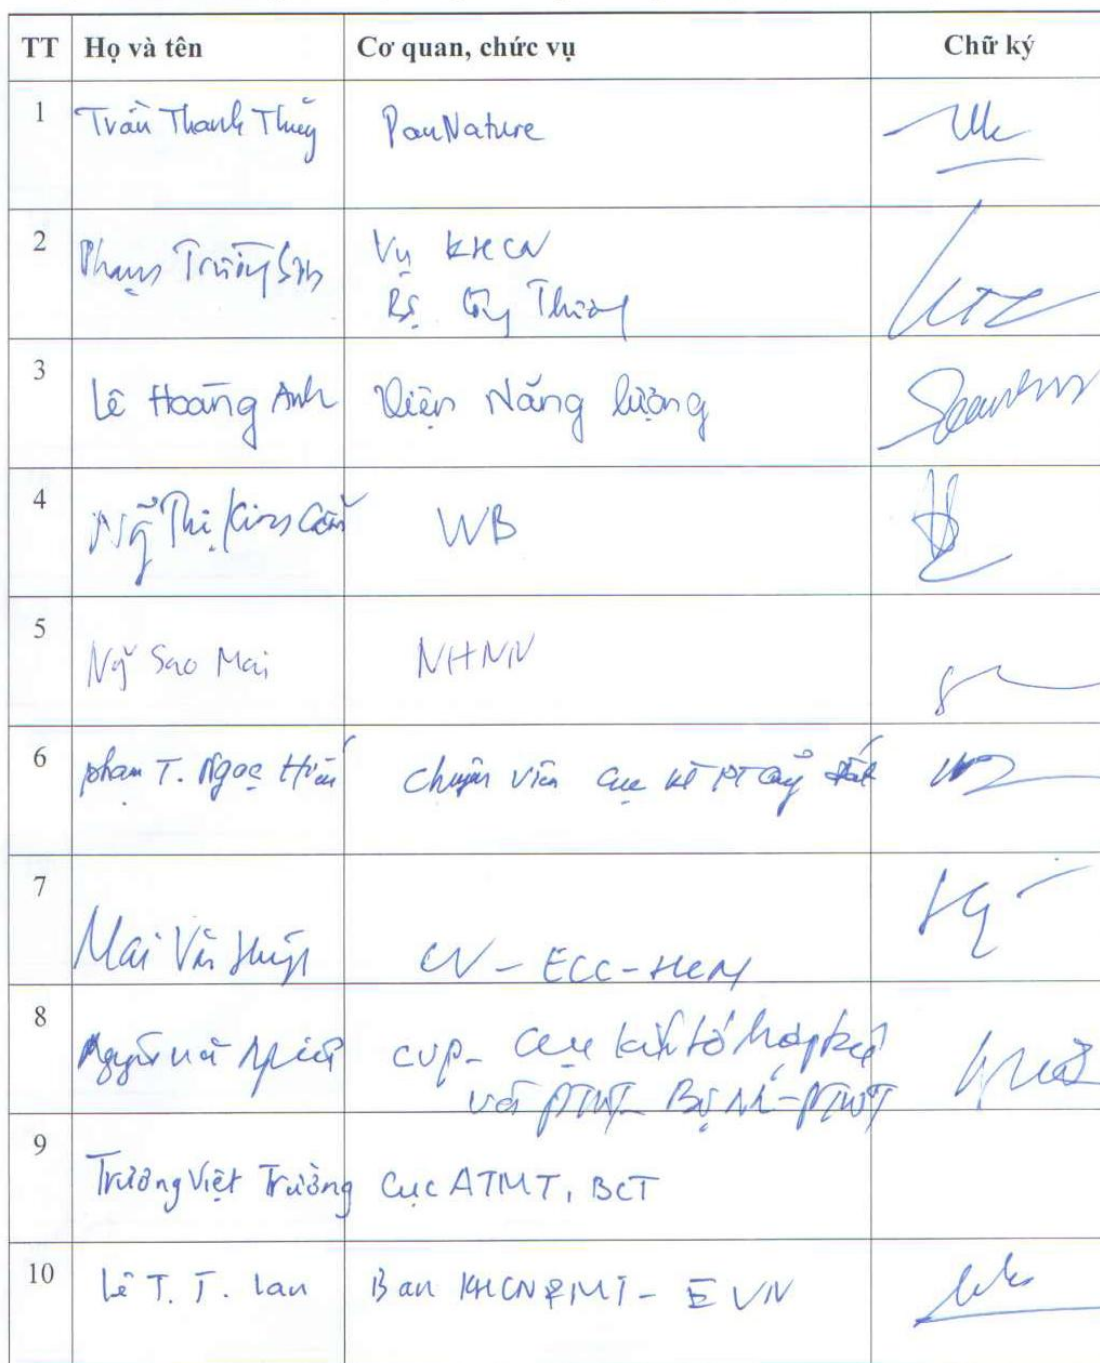 TT Họ và tên Cơ quan, chức vụ Chữ ký
1 Trần Thanh Thủy PanNature
2 Phạm Trường Sơn Vụ KHCN
Bộ Công Thương
3 Lê Hoàng Anh Viện Năng lượng
4 Ng̃ Thị Kim WB
5 Ng̃ Sao Mai NHNN
6 Phạm T. Ngọc chuyên viên cục
7 Mai Văn CV - ECC - HCM
8 CVP - Cục kinh tế hợp tác
và PTNT Bộ NN-PTNT
9 Trương Việt Trường Cục ATMT, BCT
10 Lê T. T. Lan Ban KHCN&MT - EVN